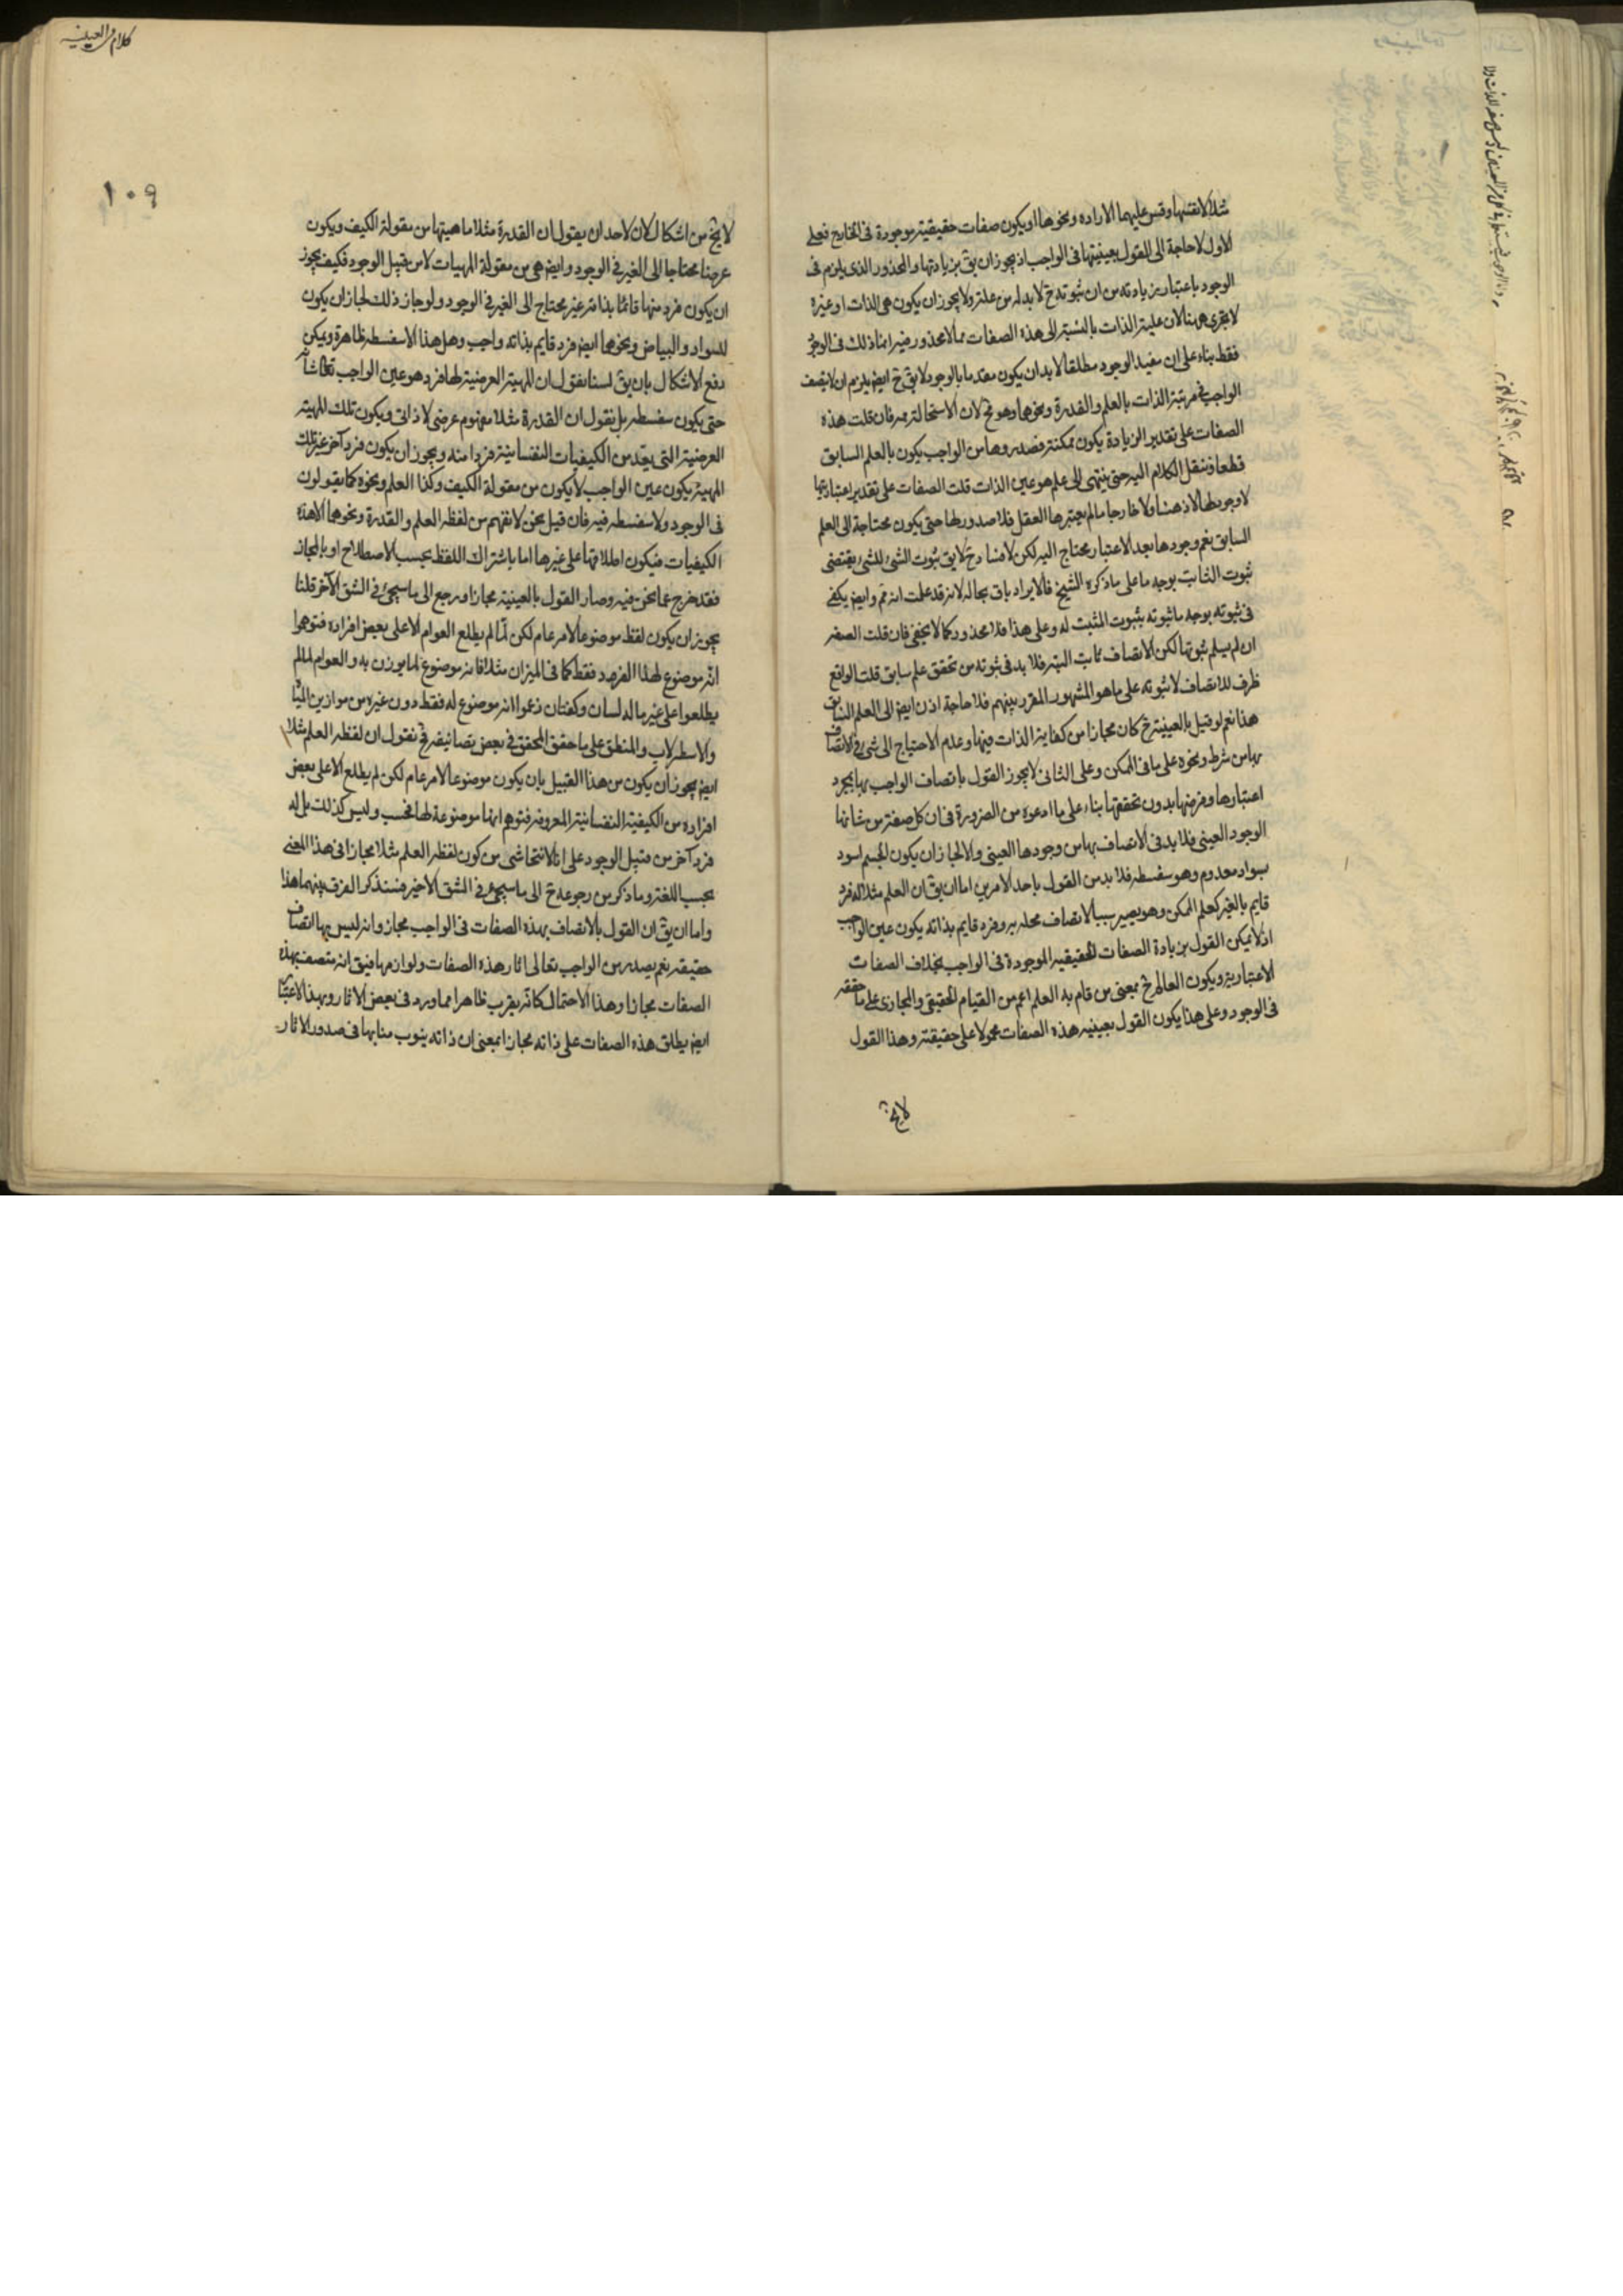 مثلا لانفسها وقس عليهما الاراده ونحوها او يكون صفات حقيقية موجودة فى الخارج فعلى
الاول لا حاجة الى القول بعينيتها فى الواجب اذ يجوز ان يق بزيادتها والمحذور الذى يلزم فى
الوجود باعتبار زيادته من ان ثبوته ح لا بد له من علة ولا يجوز ان يكون هى الذات او غيره
لا يجرى ههنا لان علية الذات بالنسبة الى هذه الصفات مما لا محذور فيه انما ذلك فى الوجود
فقط بناء على ان مفيد الوجود مطلقا لا بد ان يكون مقدما بالوجود لا يق ح ايض يلزم ان لا يتصف
الواجب فى مرتبة الذات بالعلم والقدرة ونحوهما وهو مح لان الاستحالة مم فان قلت هذه
الصفات على تقدير الزيادة يكون ممكنة فصدورها من الواجب يكون بالعلم السابق
قطعا فننقل الكلام اليه حتى ينتهى الى علم هو عين الذات قلت الصفات على تقدير اعتباريتها
لا وجود لها لا ذهنا ولا خارجا ما لم يعتبرها العقل فلا صدور لها حتى يكون محتاجة الى العلم
السابق نعم وجودها بعد الاعتبار محتاج اليه لكن لا فساد ح لا يق ثبوت الشئ للشئ يقتضى
ثبوت الثابت بوجه ما على ما ذكره الشيخ فالايراد باق بحاله لانه قد علمت انه مم وايض يكفى
فى ثبوته بوجه ما ثبوته بثبوت المثبت له وعلى هذا فلا محذور كما لا يخفى فان قلت الصفة
ان لم يسلم ثبوتها لكن الاتصاف ثابت البتة فلا بد فى ثبوته من تحقق علم سابق قلت الواقع
ظرف للاتصاف لا ثبوته على ما هو المشهور المقرر بينهم فلا حاجة اذن ايض الى العلم السابق
هذا نعم لو قيل بالعينية ح كان مجازا من كفاية الذات فيها وعدم الاحتياج الى شئ فى الاتصاف
بها من شرط ونحوه على ما فى الممكن وعلى الثانى لا يجوز القول باتصاف الواجب بها بمجرد
اعتبارها وفرضها بدون تحققها بناء على ما ادعوه من الضرورة فى ان كل صفة من شانها
الوجود العينى فلا بد فى الاتصاف بها من وجودها العينى والا لجاز ان يكون الجسم اسود
بسواد معدوم وهو سفسطه فلا بد من القول باحد الامرين اما ان يق ان العلم مثلا له فرد
قايم بالغير كعلم الممكن وهو يصير سببا لاتصاف محله به وفرد قايم بذاته يكون عين الواجب
اذ لا يمكن القول بزيادة الصفات الحقيقية الموجودة فى الواجب بخلاف الصفات
الاعتبارية ويكون العالم ح بمعنى من قام به العلم اعم من القيام الحقيقى والمجازى على ما حققه
فى الوجود وعلى هذا يكون القول بعينية هذه الصفات محمولا على حقيقته وهذا القول
لا يخ
كلام فى العينية
١٠٩
لا يخ من اشكال لان لاحد ان يقول ان القدرة مثلا ماهيتها من مقولة الكيف ويكون
عرضا محتاجا الى الغير فى الوجود وايض هى من مقولة المهيات لا من قبيل الوجود فكيف يجوز
ان يكون فرد منها قائما بذاته غير محتاج الى الغير فى الوجود ولو جاز ذلك لجاز ان يكون
للسواد والبياض ونحوها ايض فرد قايم بذاته واجب وهل هذا الا سفسطه ظاهرة ويمكن
دفع الاشكال بان يق لسنا نقول ان للمهية العرضية لها فرد هو عين الواجب تعالى شانه
حتى يكون سفسطه بل نقول ان القدرة مثلا مفهوم عرضى لا ذاتى ويكون تلك المهية
العرضية التى يعد من الكيفيات النفسانية فردا منه ويجوز ان يكون فرد آخر غير تلك
المهية يكون عين الواجب لا يكون من مقولة الكيف وكذا العلم ونحوه كما يقولون
فى الوجود ولا سفسطه فيه فان قيل نحن لا نفهم من لفظه العلم والقدرة ونحوهما الا هذه
الكيفيات فيكون اطلاقها على غيرها اما باشتراك اللفظ بحسب الاصطلاح او بالمجاز
فقد خرج عما نحن فيه وصار القول بالعينية مجازا ورجع الى ما سيجئ فى الشق الآخر قلنا
يجوز ان يكون لفظ موضوعا لامر عام لكن لما لم يطلع العوام الا على بعض افراده فتوهموا
انه موضوع لهذا الفرد فقط كما فى الميزان مثلا فانه موضوع لما يوزن به والعوام لما لم
يطلعوا على غير ما له لسان وكفتان زعموا انه موضوع له فقط دون غيره من موازين المياه
والاسطرلاب والمنطق على ما حقق المحقق فى بعض تصانيفه فح نقول ان لفظه العلم مثلا
ايض يجوز ان يكون من هذا القبيل بان يكون موضوعا لامر عام لكن لم يطلع الا على بعض
افراده من الكيفية النفسانية المعروفة فتوهم انها موضوعة لها فحسب وليس كذلك بل له
فرد آخر من قبيل الوجود على انا لا نتحاشى من كون لفظه العلم مثلا مجازا فى هذا المعنى
بحسب اللغة وما ذكر من رجوعه ح الى ما سيجئ فى الشق الاخير فسنذكر الفرق بينهما هذا
واما ان يق ان القول بالاتصاف بهذه الصفات فى الواجب مجاز وانه ليس بها اتصاف
حقيقه نعم يصدر من الواجب تعالى اثار هذه الصفات ولوازمها فيق انه متصف بهذه
الصفات مجازا وهذا الاحتمال كانه يقرب ظاهرا مما ورد فى بعض الاثار وبهذا الاعتبار
ايض يطلق هذه الصفات على ذاته مجازا بمعنى ان ذاته ينوب منابها فى صدور الاثار